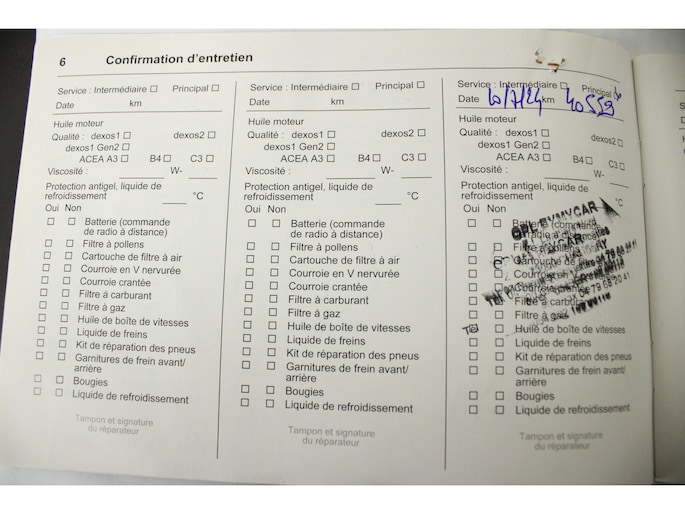 6 Confirmation d'entretien
Service : Intermédiaire ☐ Principal ☐
Date km
Huile moteur
Qualité : dexos1 ☐ dexos2 ☐
dexos1 Gen2 ☐
ACEA A3 ☐ B4 ☐ C3 ☐
Viscosité : W-
Protection antigel, liquide de
refroidissement °C
Oui Non
☐ ☐ Batterie (commande
de radio à distance)
☐ ☐ Filtre à pollens
☐ ☐ Cartouche de filtre à air
☐ ☐ Courroie en V nervurée
☐ ☐ Courroie crantée
☐ ☐ Filtre à carburant
☐ ☐ Filtre à gaz
☐ ☐ Huile de boîte de vitesses
☐ ☐ Liquide de freins
☐ ☐ Kit de réparation des pneus
☐ ☐ Garnitures de frein avant/
arrière
☐ ☐ Bougies
☐ ☐ Liquide de refroidissement
Tampon et signature
du réparateur
Service : Intermédiaire ☐ Principal ☐
Date km
Huile moteur
Qualité : dexos1 ☐ dexos2 ☐
dexos1 Gen2 ☐
ACEA A3 ☐ B4 ☐ C3 ☐
Viscosité : W-
Protection antigel, liquide de
refroidissement °C
Oui Non
☐ ☐ Batterie (commande
de radio à distance)
☐ ☐ Filtre à pollens
☐ ☐ Cartouche de filtre à air
☐ ☐ Courroie en V nervurée
☐ ☐ Courroie crantée
☐ ☐ Filtre à carburant
☐ ☐ Filtre à gaz
☐ ☐ Huile de boîte de vitesses
☐ ☐ Liquide de freins
☐ ☐ Kit de réparation des pneus
☐ ☐ Garnitures de frein avant/
arrière
☐ ☐ Bougies
☐ ☐ Liquide de refroidissement
Tampon et signature
du réparateur
Service : Intermédiaire ☐ Principal
Date 10/7/24 km 40559
Huile moteur
Qualité : dexos1 ☐ dexos2 ☐
dexos1 Gen2 ☐
ACEA A3 ☐ B4 ☐ C3 ☐
Viscosité : W-
Protection antigel, liquide de
refroidissement °C
Oui Non
☐ ☐ Batterie (commande
BYMYCAR
☐ ☐ Filtre à pollens
☐ Cartouche de
☐ ☐ Courroie en V
☐ Courroie
☐ ☐ Filtre à
☐ ☐ Filtre à
☐ Huile de boîte de vitesses
☐ ☐ Liquide de freins
☐ ☐ Kit de réparation des pneus
☐ ☐ Garnitures de frein avant/
arrière
☐ ☐ Bougies
☐ ☐ Liquide de refroidissement
Tampon et signature
du réparateur